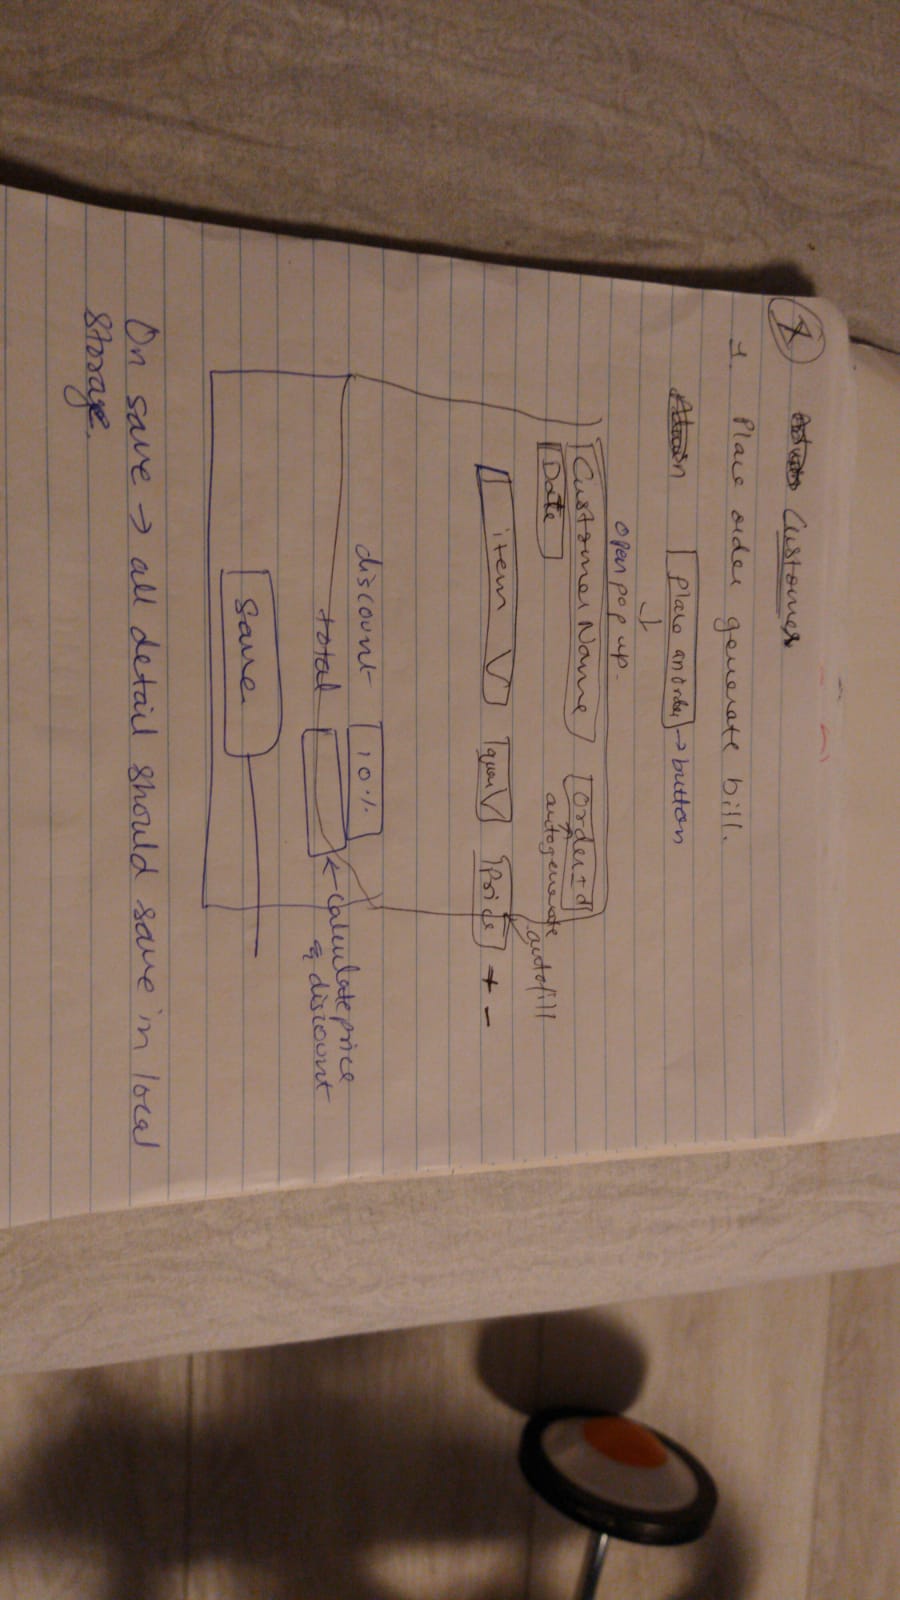 Customer
1. Place order generate bill.
Place an order → button
open pop up.
Customer Name
Order Id
Date
autogenerate
autofill
item quan Price + -
discount 10%
total ← calculate price
& discount
Save
On save → all detail should save in local
storage.